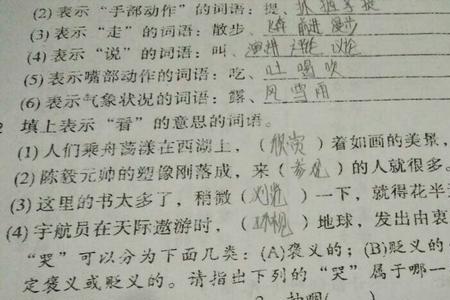 (2)表示“手部动作”的词语：提、抓
(3)表示“走”的词语：散步、飞奔 前进 漫步
(4)表示“说”的词语：叫、演讲 讨论 议论
(5)表示嘴部动作的词语：吃、吐 喝 吹
(6)表示气象状况的词语：露、风 雪 雨
2 填上表示“看”的意思的词语。
(1)人们乘舟荡漾在西湖上，（欣赏）着如画的美景，
(2)陈毅元帅的塑像刚落成，来（参观）的人就很多。
(3)这里的书太多了，稍微（浏览）一下，就得花半
(4)宇航员在天际遨游时，（环视）地球，发出由衷
“哭”可以分为下面几类：(A)褒义的；(B)贬义的
定褒义或贬义的。请指出下列的“哭”属于哪一